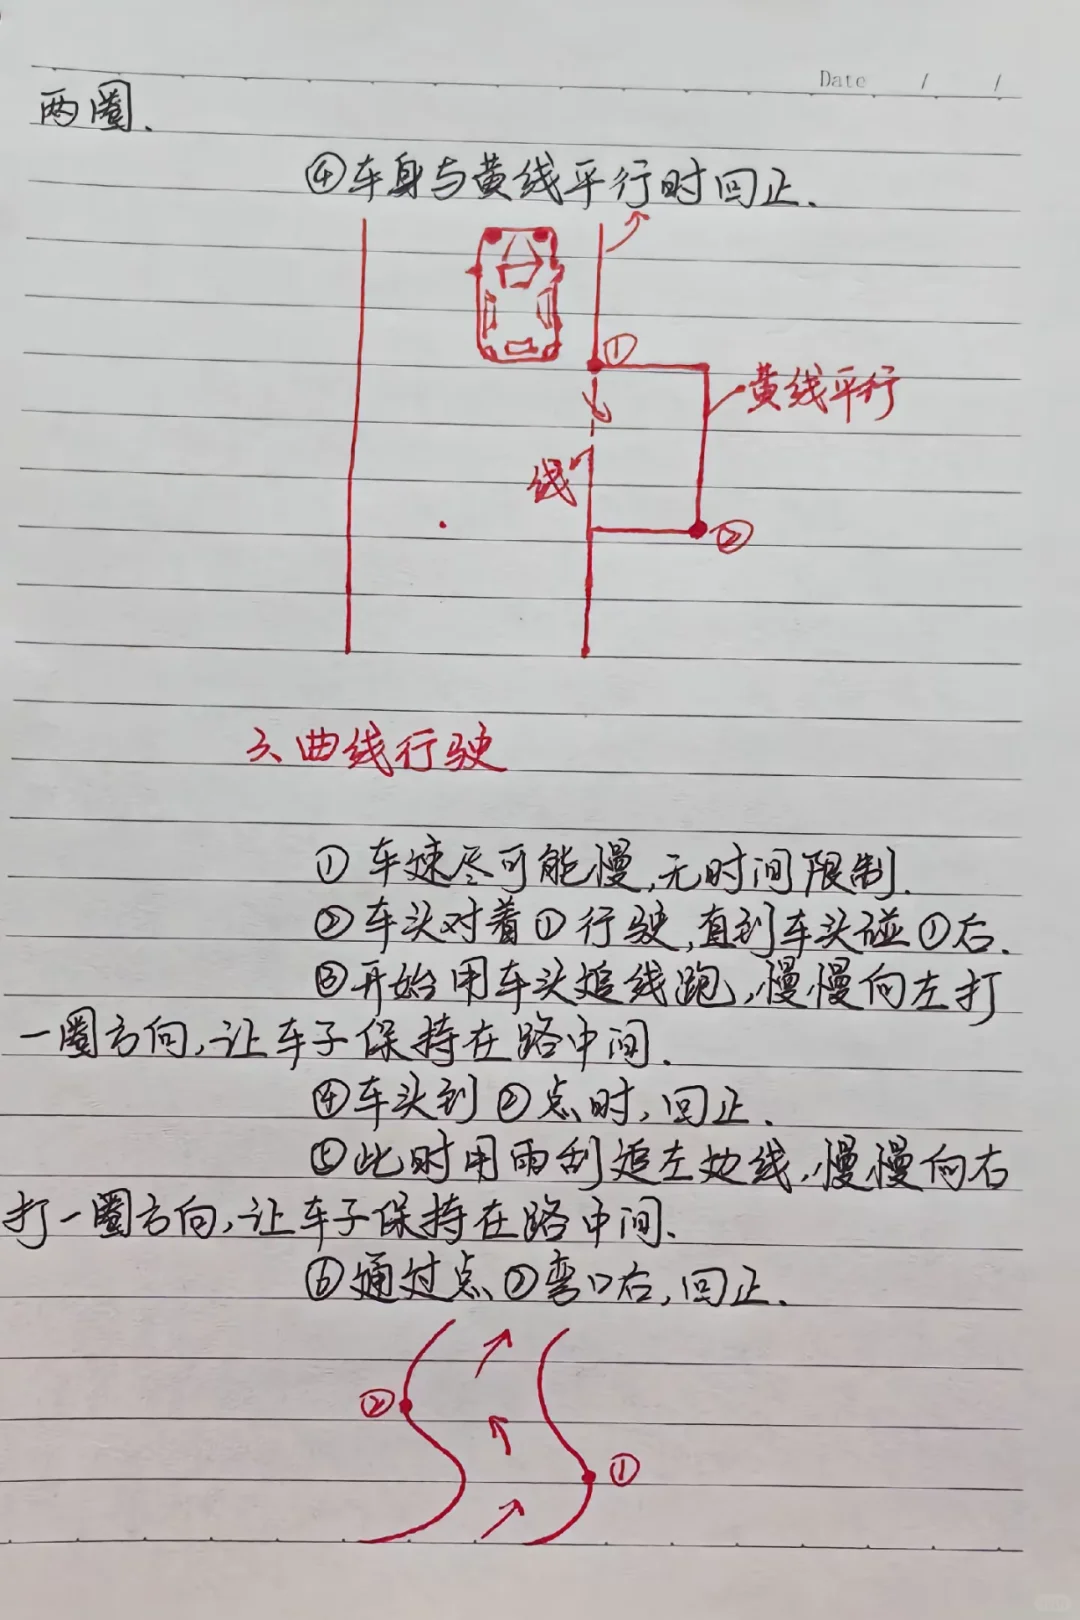 Date / /
两圈.
④车身与黄线平行时回正.
①
黄线平行
线
②
六、曲线行驶
①车速尽可能慢,无时间限制.
②车头对着①行驶,直到车头碰①右.
③开始用车头追线跑,慢慢向左打
一圈方向,让车子保持在路中间.
④车头到②点时,回正.
⑤此时用雨刮追左边线,慢慢向右
打一圈方向,让车子保持在路中间.
⑥通过点②弯口右,回正.
②
①